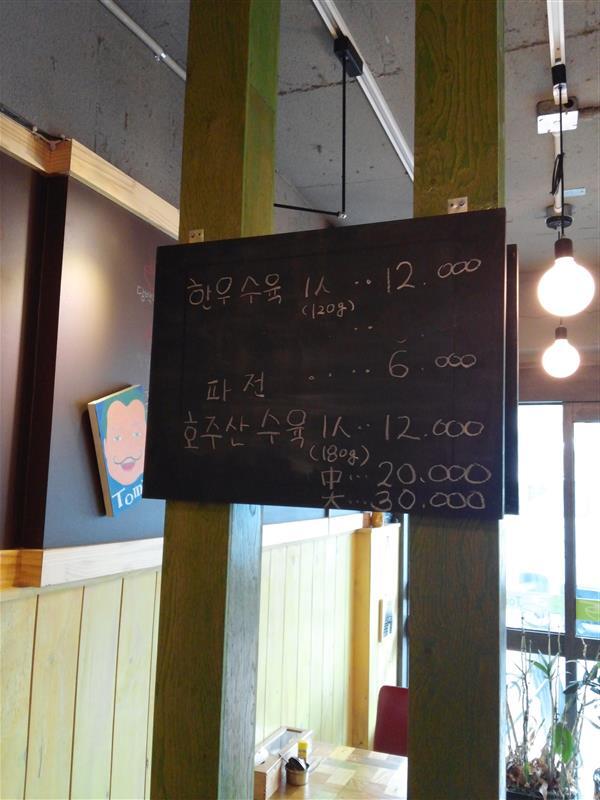 한우수육 1人 ‥ 12.000
(120g)
‥
파전 ‥‥ 6.000
호주산수육 1人‥12.000
(180g)
中…20.000
大…30.000
Tom